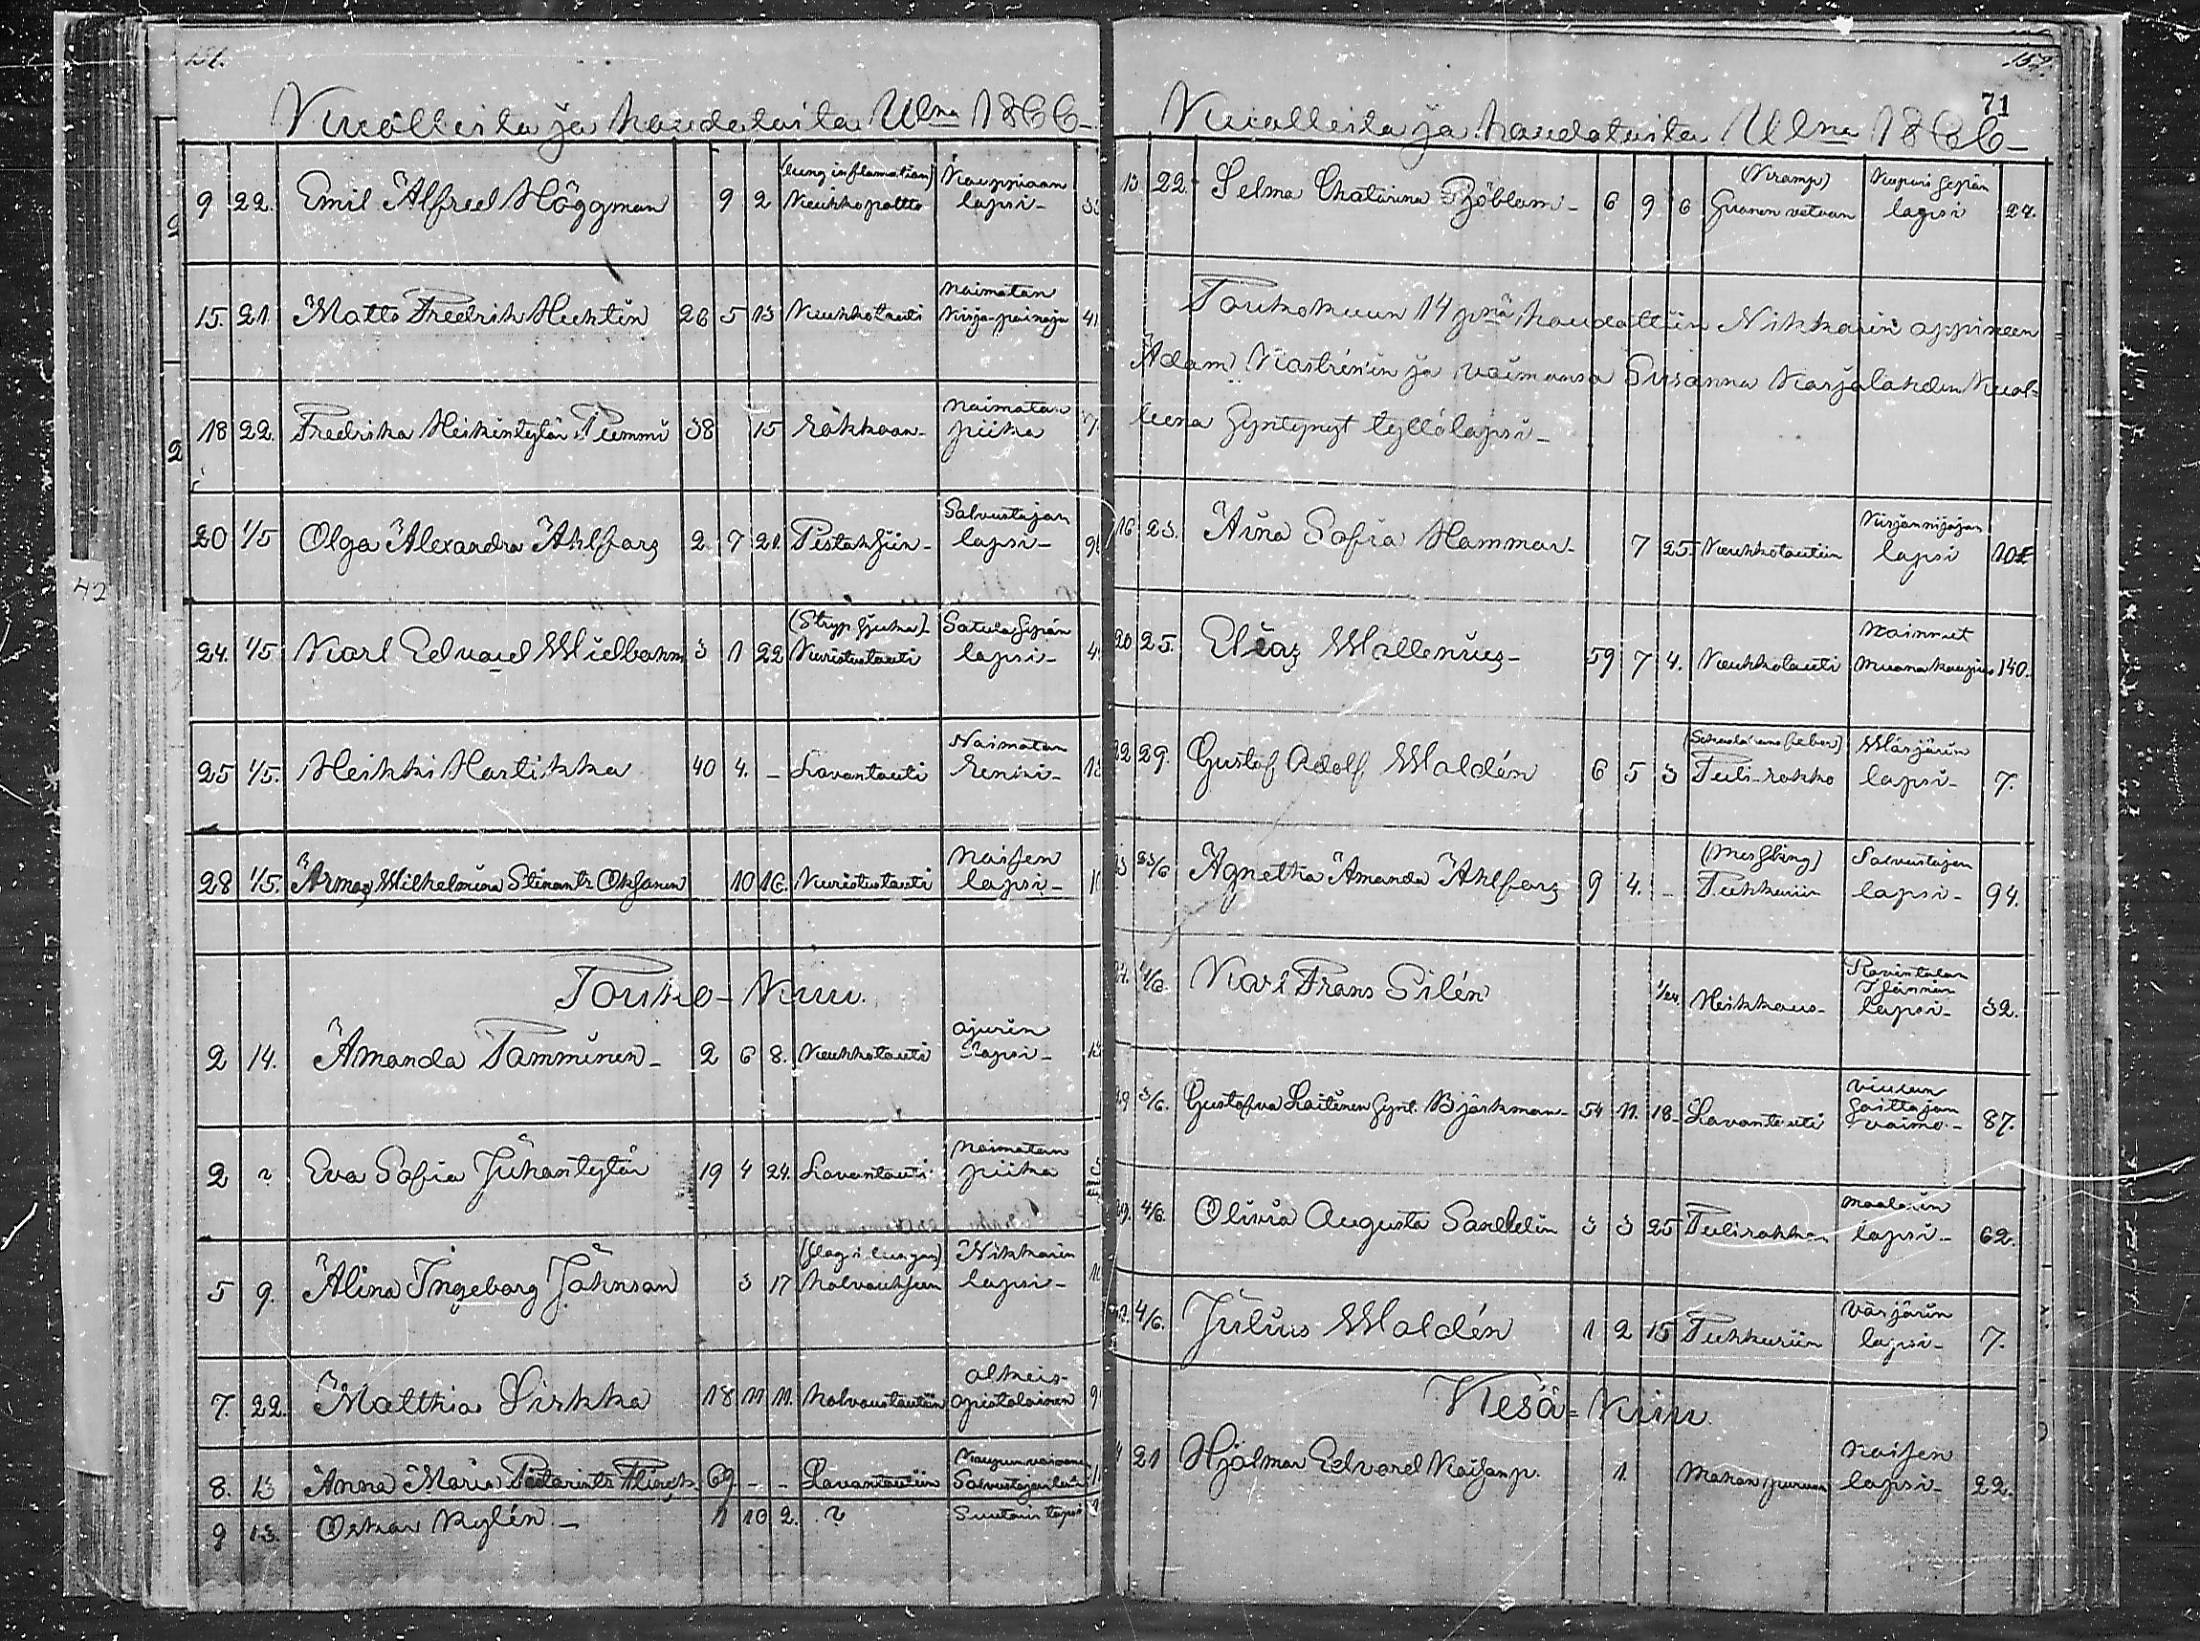 151.
Kuolleista ja haudatuista Wlna 1866-
9 22. Emil Alfred Höggman 9 2 (lung inflamation) Keuhkopoltto Kauppiaan lapsi-
15. 21. Matts Fredrik Huktin 26 5 13 Keuhkotauti Naimatan Kirja painaja 41
18 22. Fredrika Heikintytär Pummi 38 15 rokkoon- Naimatan piika 7
20 1/5 Olga Alexandra Ahlfors 2. 7 21. Pistoksiin- Salvustajan lapsi-
24. 1/5 Karl Edvard Widbohm 3 1 22 (Stryp sjuka) Kuristustauti Satula sepän lapsi- 4
25 1/5. Heikki Hartikka 40 4. - Lavantauti Naimatan renki-
28 1/5. Wilhelmina Stinantr Oksanen 10 16. Kuristustauti Naisen lapsi-
Touko-Kuu.
2 14. Amanda Tamminen- 2 6 8. Keuhkotauti ajurin lapsi-
2 ? Eva Sofia Juhantytär 19 4 24. Lavantauti Naimatan piika
5 9. Alina Ingeborg Johnson 3 17 (slag i lungan) halvauksen Nikkarin lapsi-
7. 22. Matthias Sirkka 18 11 11. halvaustautiin alkeis-opistolainen 9
8. 13 Anna Maria 69 - - Lavantautiin
9 13. Oskar Rylén - 1 10 2. ? Suutarin lapsi
152.
71
Kuolleista ja haudatuista Wlna 1866-
13 22. Selma Chatarina Sjöblom- 6 9 6 (Kramp) Suonen vetoon Kupari sepän lapsi 27.
Toukokuun 14 pnä haudattiin Nikkarin oppineen
Adam Kastrénin ja vaimonsa Susanna Karjalahden Kuol-
leena syntynyt tyttölapsi-
16 23. Aina Sofia Hammar- 7 25. Keuhkotautiin lapsi 101
20 25. Elias Wallenius- 59 7 4. Keuhkotauti Nainnut 140.
22 29. Gustaf Adolf Waldén 6 5 3 Tuli-rokko Wärjärin lapsi- 7.
Agnetha Amanda Ahlfors 9 4. - (Messling) Tuhkuriin Salvustajan lapsi- 94.
Karl Frans Silén 1/24. Heikkous- Ravintolan Isännän lapsi- 32.
29 3/6. Gustafva Laitinen synt. Björkman- 54 11. 18. Lavantauti viulun soittajan vaimo- 87.
29. 4/6. Olivia Augusta Sandelin 3 3 25 Tulirokko maalarin lapsi- 62.
4/6. Julius Waldén 1 2 15 Tuhkuriin värjärin lapsi- 7.
Kesä=Kuu
21 Hjalmar Edvard 1. Naisen lapsi- 22.
42